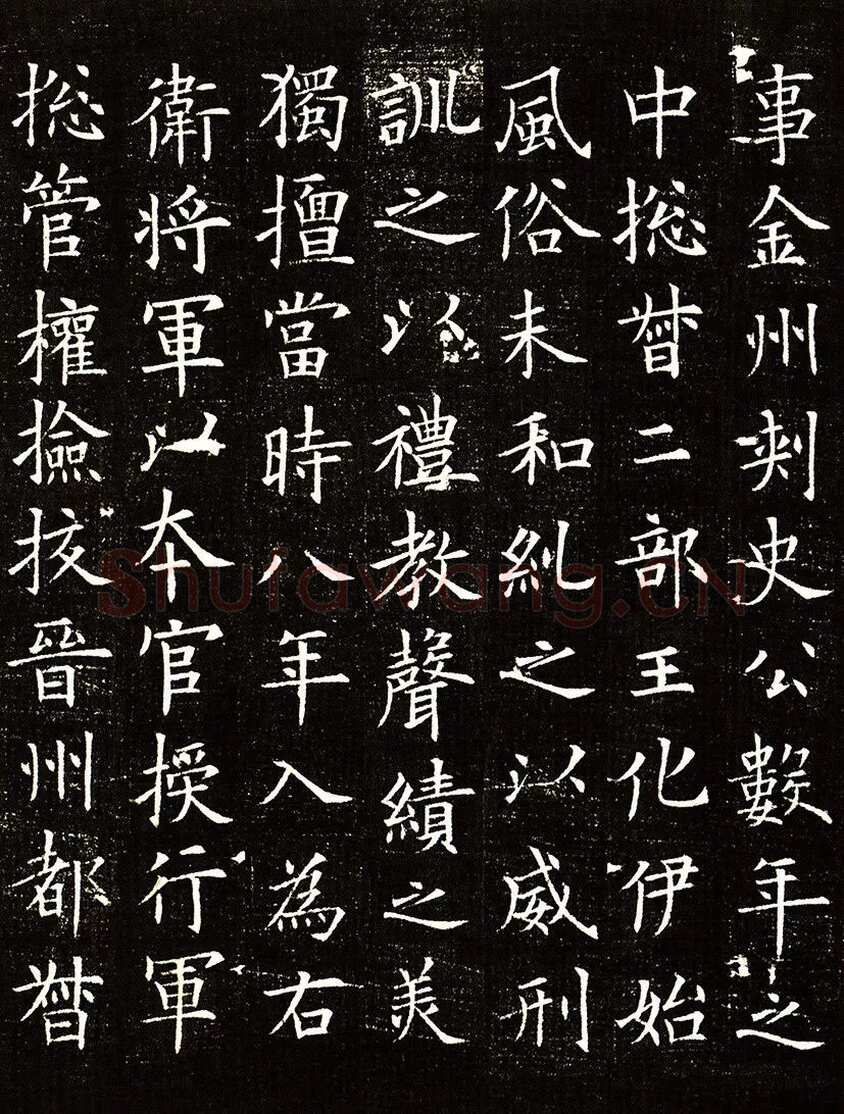 事金州刾史公數年之
中捴督二部王化伊始
風俗未和糺之以威刑
訓之以禮教聲績之美
獨擅當時八年入為右
衛将軍以本官授行軍
捴管權撿挍晉州都督
Shufawang.CN